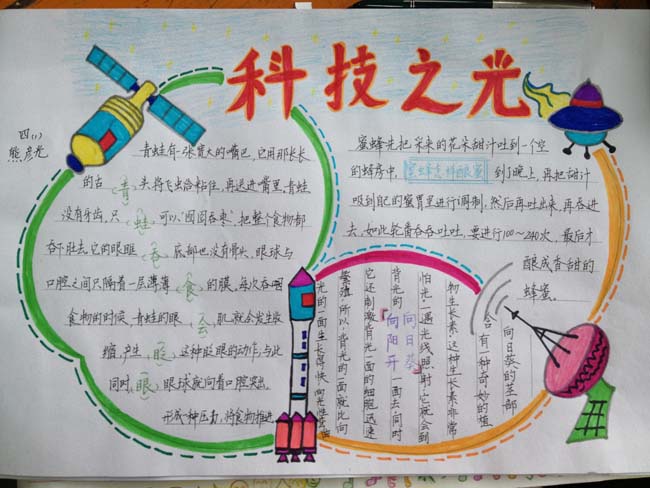 科技之光
四(1)
熊彦光
青蛙有一张宽大的嘴巴，它用那长长
的舌头将飞虫给粘住，再送进嘴里。青蛙
没有牙齿，只可以“囫囵吞枣”把整个食物都
吞下肚去，它的眼眶底部也没有骨头，眼球与
口腔之间只隔着一层薄薄的膜，每次吞咽
食物的时候，青蛙的眼肌就会发生收
缩，产生这种眨眼的动作，与此
同时，眼球就向着口腔突出，
形成一种压力，将食物推进
青
蛙
吞
食
会
眨
眼
蜜蜂先把采来的花朵甜汁吐到一个空
的蜂房中，到了晚上，再把甜汁
吸到自己的蜜胃里进行调制，然后再吐出来，再吞进
去，如此轮番吞吞吐吐，要进行100～240次，最后才
酿成香甜的
蜂蜜。
蜜蜂怎样酿蜜
向日葵的茎部
含有一种奇妙的植
物生长素，这种生长素非常
怕光，一遇光线照射，它就会到
背光的一面去，同时
它还刺激背光一面的细胞迅速
繁殖，所以，背光的一面就比向
光的一面生长得快，
向日葵
向阳开